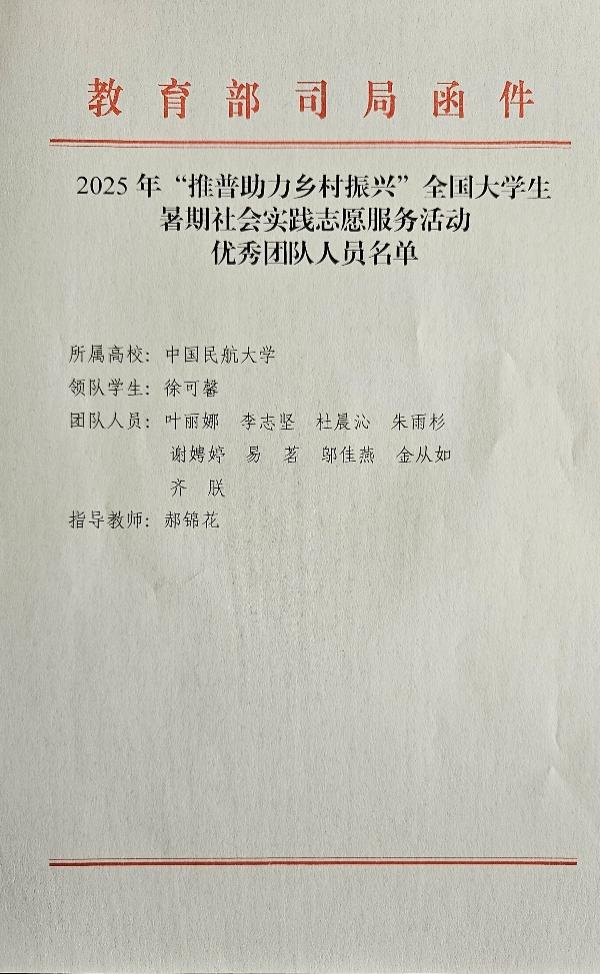 教育部司局函件
2025 年“推普助力乡村振兴”全国大学生
暑期社会实践志愿服务活动
优秀团队人员名单
所属高校：中国民航大学
领队学生：徐可馨
团队人员：叶丽娜 李志坚 杜晨沁 朱雨杉
谢娉婷 易 茗 邬佳燕 金从如
齐 朕
指导教师：郝锦花